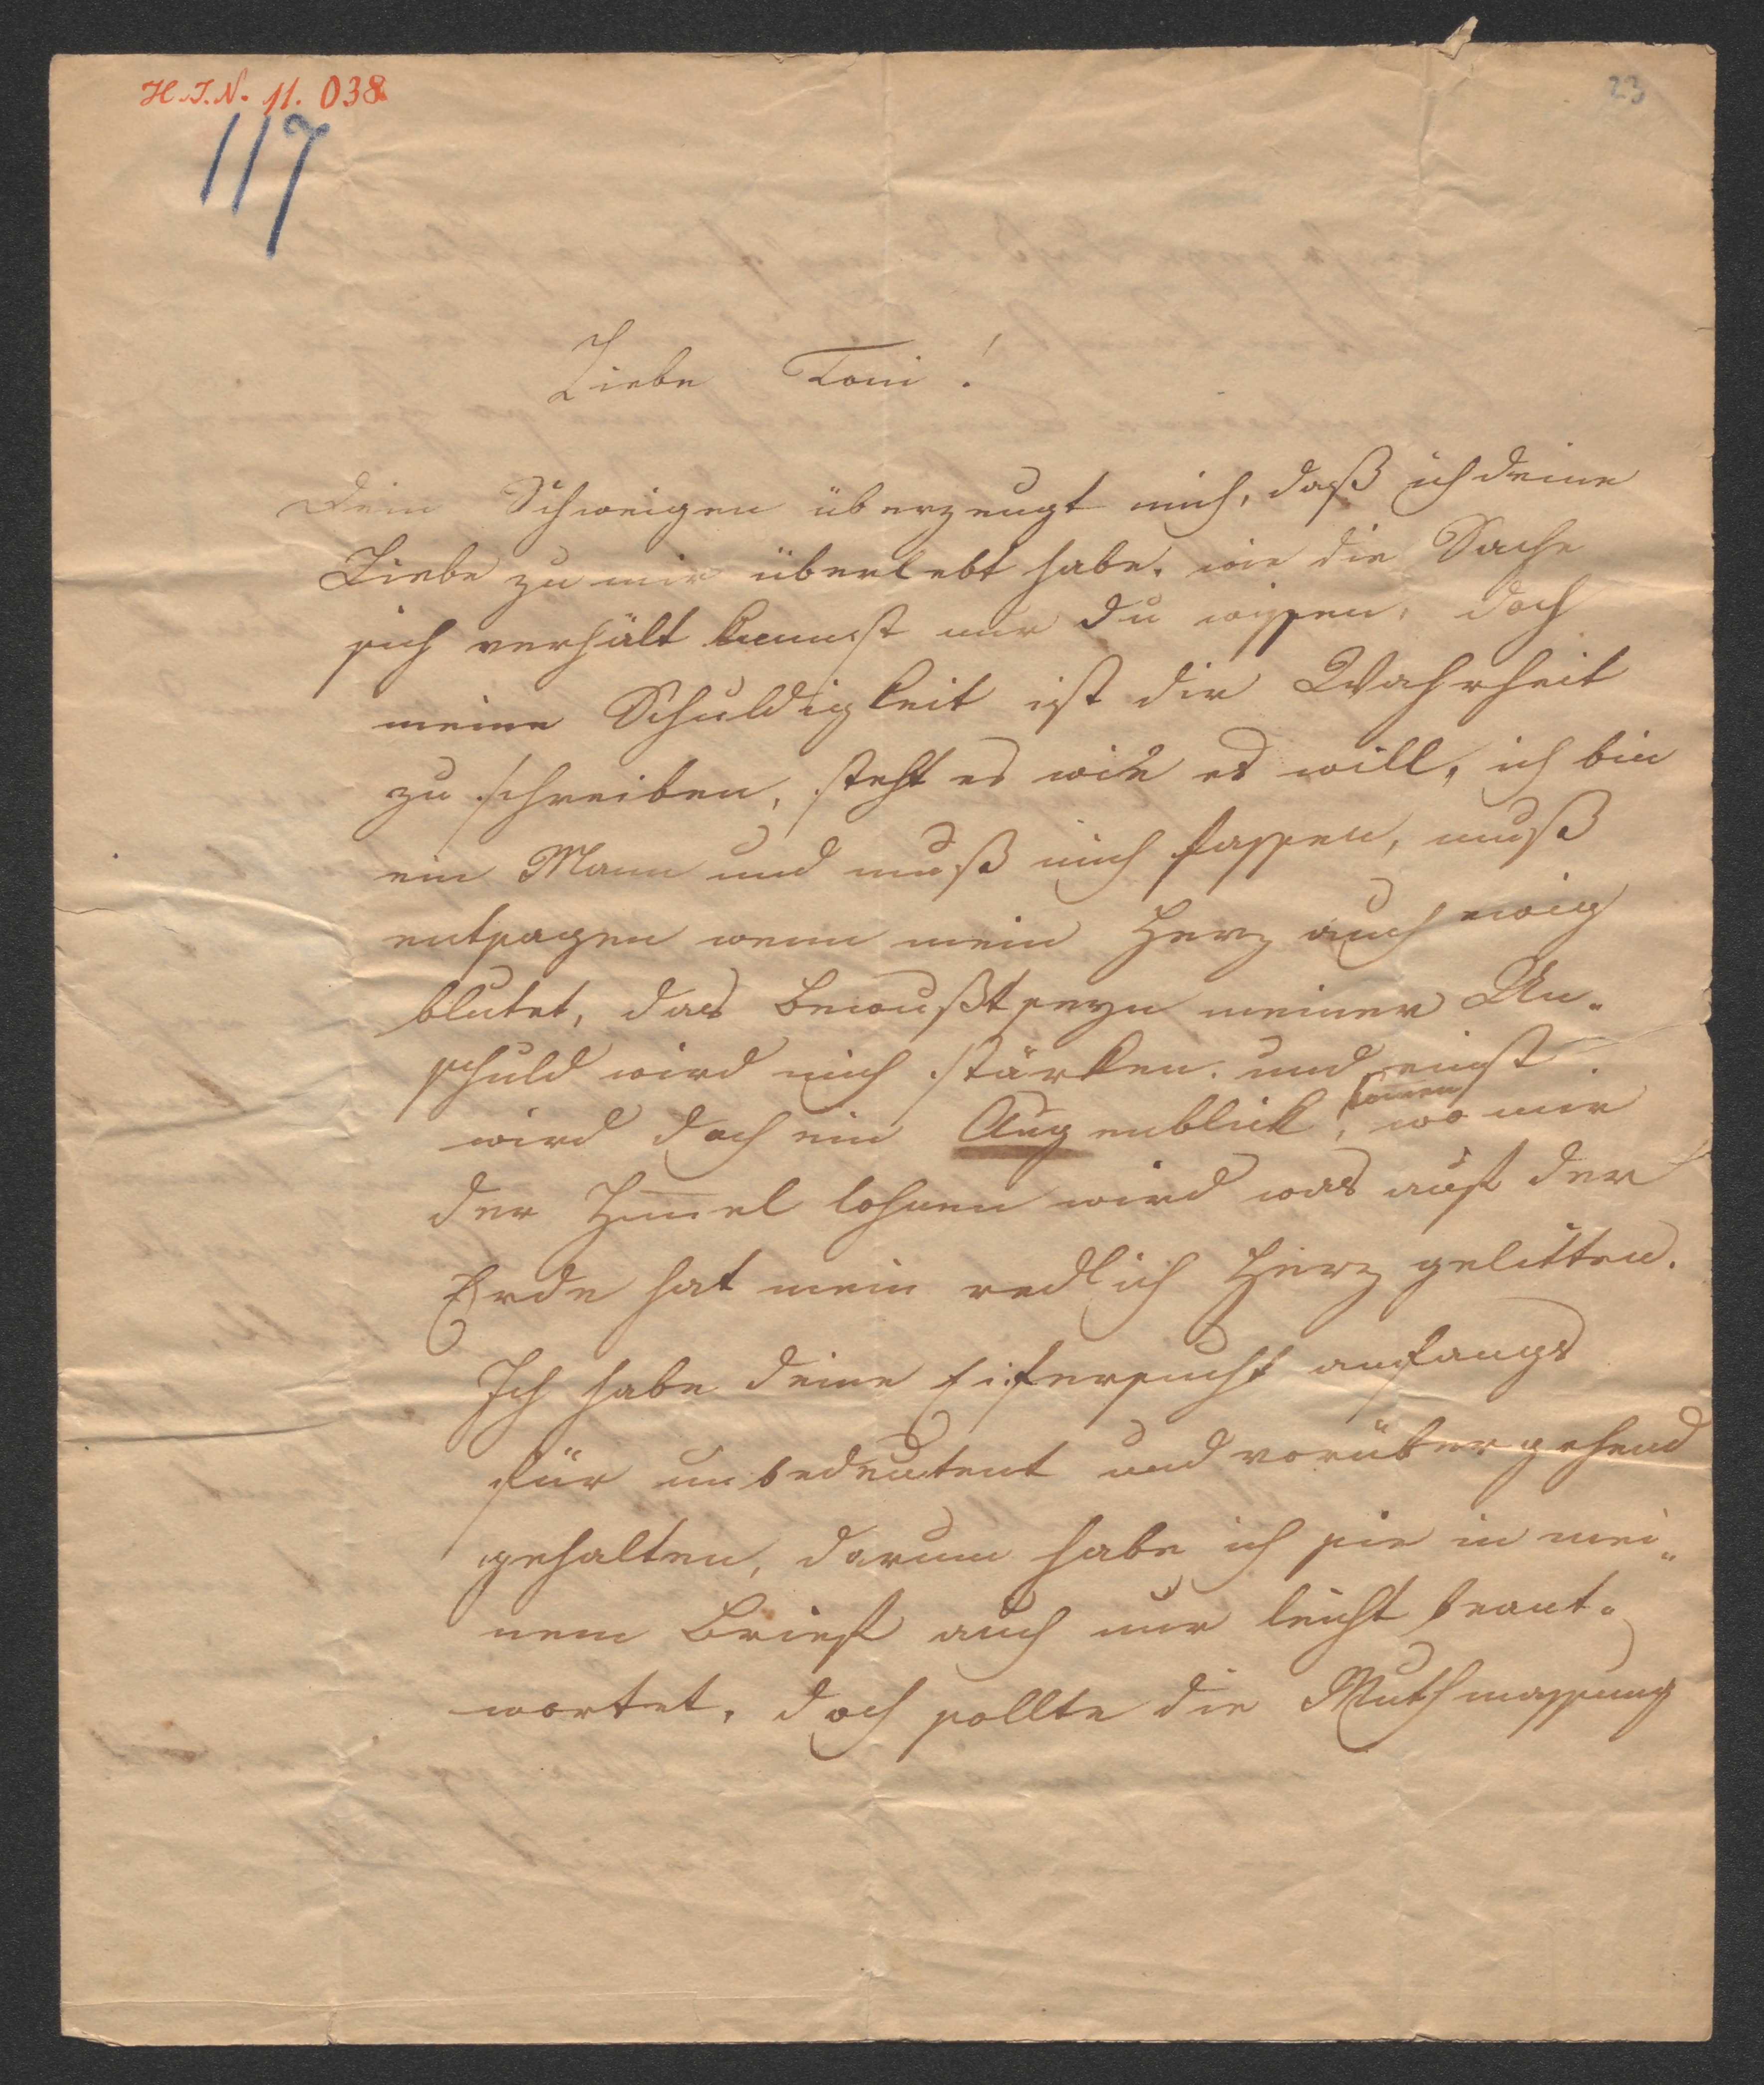 H.I.N. 11.038
23
117
Liebe Toni!
Dein Schweigen überzeugt mich, daß ich deine
Liebe zu mir überlebt habe. wie die Sache
sich verhält kannst nur du wissen, doch
meine Schuldigkeit ist die Wahrheit
zu schreiben, steht es wie es will, ich bin
ein Mann und muß mich fassen, muß
entsagen wenn mein Herz auch ewig
blutet, das Bewußtseyn meiner Un-
schuld wird mich stärken. und einst
kom̅en
wird doch ein Augenblick, wo mir
der Him̅el lohnen wird was auf der
Erde hat mein redlich Herz gelitten.
Ich habe deine Eifersucht anfangs
für unbedeutent und vorübergehend
gehalten, darum habe ich sie in mei-
nem Brief auch nur leicht beant-
wortet. doch sollte die Muthmassung